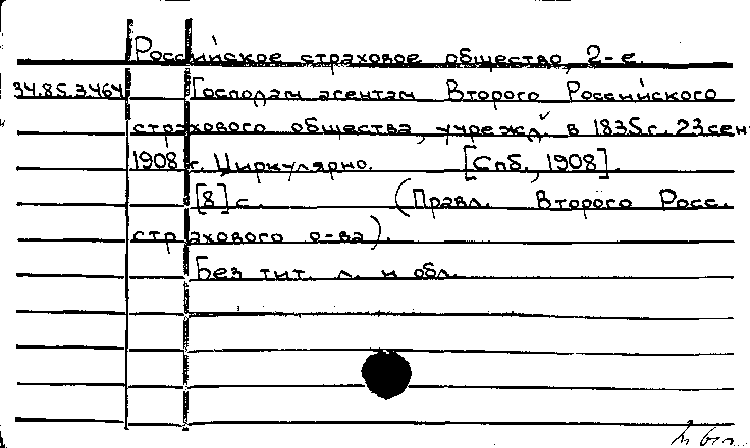 Российское страховое общество, 2-е.
34.85.3464 Господам агентам Второго Российского
страхового общества, учрежд. в 1835 г. 23 сен
1908 г. Циркулярно. [Спб., 1908].
[8] с. (Правл. Второго Росс.
страхового о-ва).
Без тит. л. и обл.